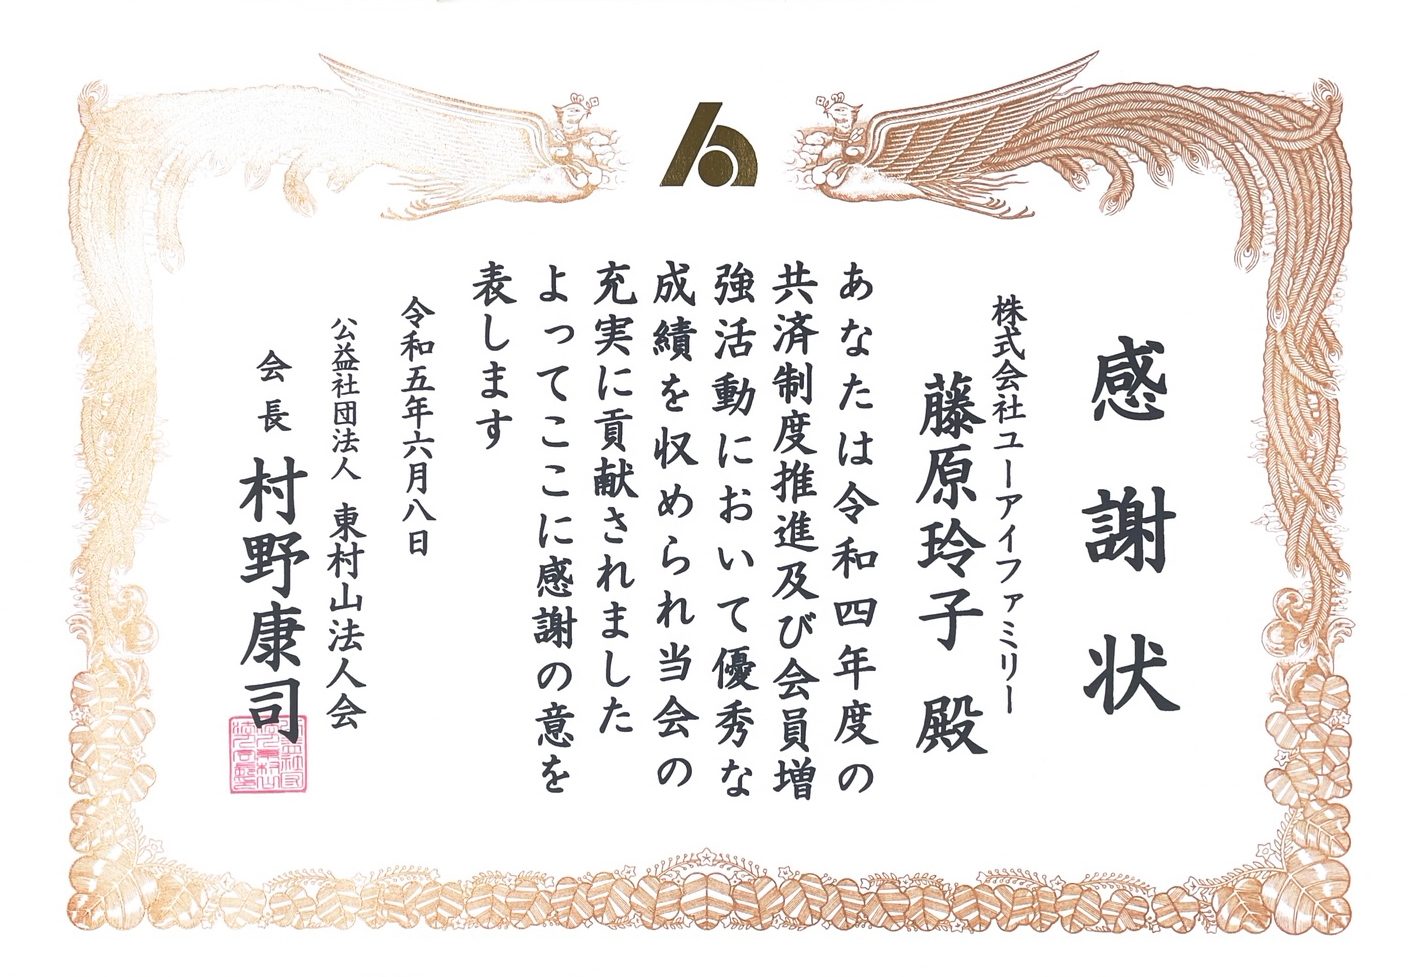 感謝状
株式会社ユーアイファミリー
藤原玲子 殿
あなたは令和四年度の
共済制度推進及び会員増
強活動において優秀な
成績を収められ当会の
充実に貢献されました
よってここに感謝の意を
表します
令和五年六月八日
公益社団法人 東村山法人会
会長 村野康司